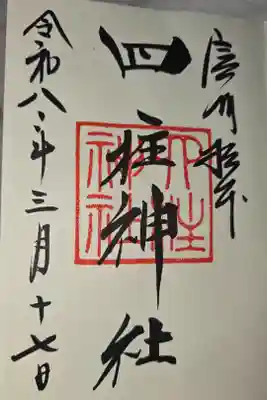 信州松本
四柱神社
四柱神社
令和八年三月十七日